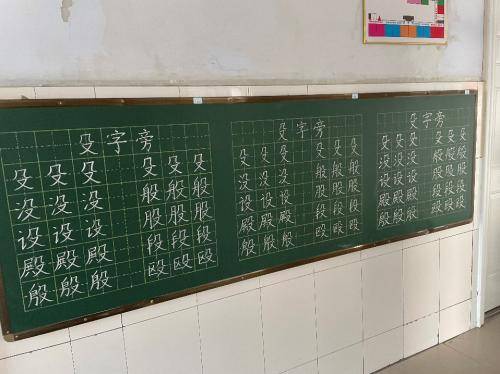 殳字旁
殳殳殳 殳殳殳
没没没 般般般
设设设 股股股
殿殿殿 段段段
殷殷殷 殴殴殴
殳字旁
殳殳殳 殳殳殳
没没没 般般般
设设设 股股股
殿殿殿 段段段
殷殷殷 殴殴殴
殳字旁
殳殳殳 殳殳殳
没没没 般般般
设设设 股股股
殿殿殿 段段段
殷殷殷 段段段